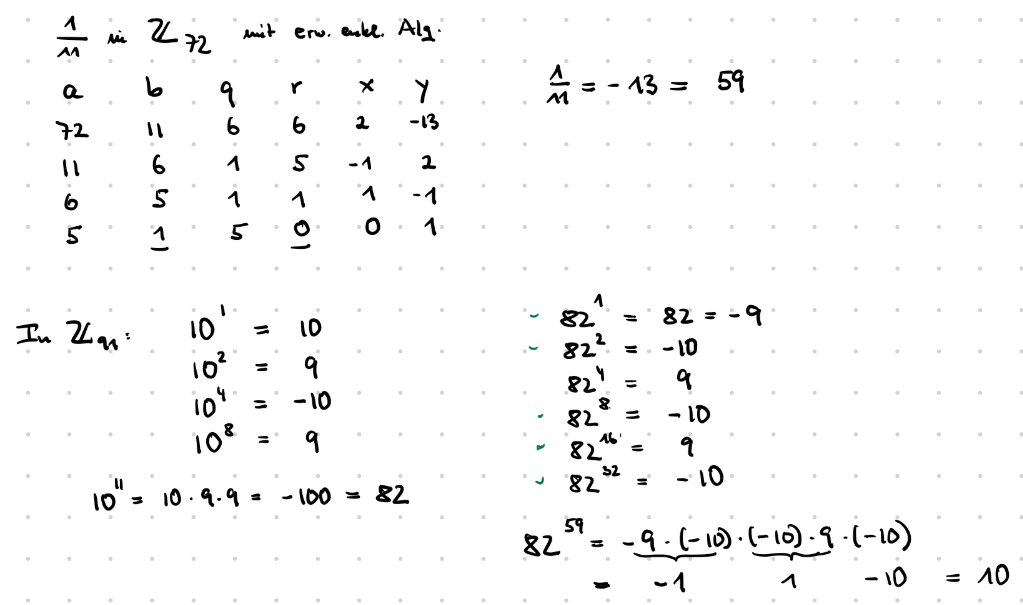 1/11 in ℤ₇₂ mit erw. eukl. Alg.
a b q r x y
72 11 6 6 2 -13
11 6 1 5 -1 2
6 5 1 1 1 -1
5 1 5 0 0 1
1/11 = -13 = 59
In ℤ₉₁:
10¹ = 10
10² = 9
10⁴ = -10
10⁸ = 9
10¹¹ = 10·9·9 = -100 = 82
82¹ = 82 = -9
82² = -10
82⁴ = 9
82⁸ = -10
82¹⁶ = 9
82³² = -10
82⁵⁹ = -9·(-10)·(-10)·9·(-10)
= -1 1 -10 = 10